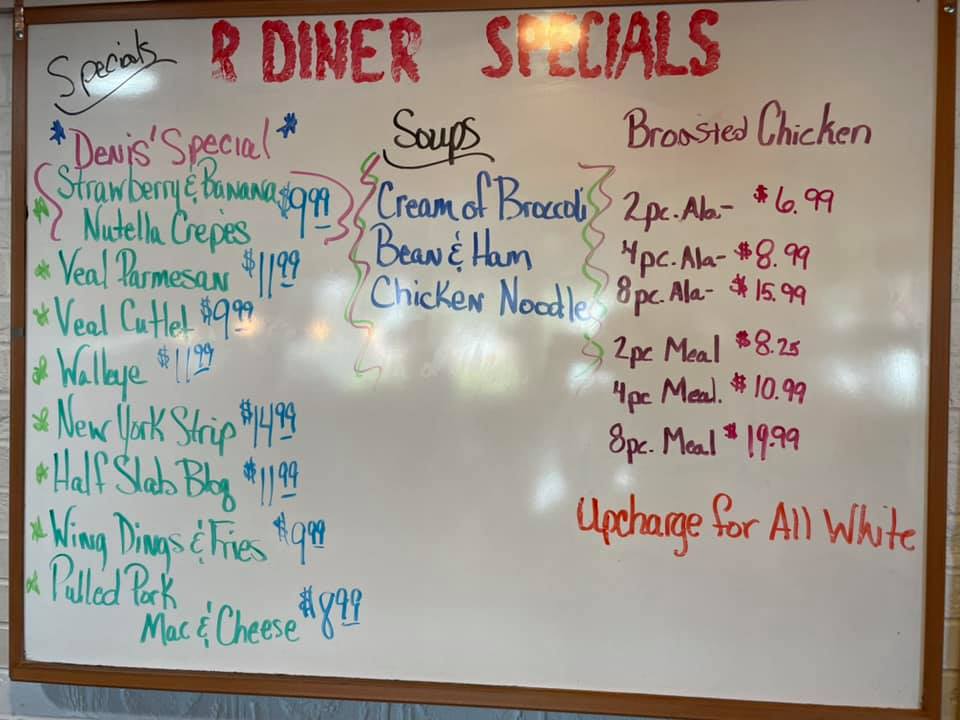 R DINER SPECIALS
Specials
*Denis' Special*
Strawberry & Banana
Nutella Crepes $9.99
Veal Parmesan $11.99
Veal Cutlet $9.99
Walleye $11.99
New York Strip $14.99
Half Slab Bbq $11.99
Wing Dings & Fries $9.99
Pulled Pork
Mac & Cheese $8.99
Soups
Cream of Broccoli
Bean & Ham
Chicken Noodle
Broasted Chicken
2pc. Ala- $6.99
4pc. Ala- $8.99
8pc. Ala- $15.99
2pc Meal $8.25
4pc Meal. $10.99
8pc. Meal $19.99
Upcharge for All White